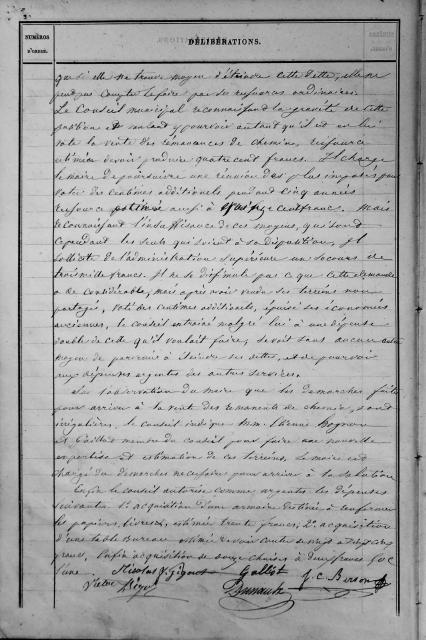 NUMÉROS
D'ORDRE.
DÉLIBÉRATIONS.
que si elle ne trouve moyen d'éteindre cette dette, elle ne
peut pas compter le faire par ses ressources ordinaires.
Le Conseil municipal reconnaissant la gravité de cette
position et voulant y pourvoir autant qu'il est en lui
vote la vente des remanances de chemins, ressource
estimée devoir produire quatre cent francs. Il charge
le maire de poursuivre une réunion des plus imposés pour
voter des centimes additionels pendant cinq années
ressource estimée aussi à cent franc. Mais
reconnaissant l'insuffisance de ces moyens, qui sont
cependant les seuls qui soient à sa disposition, Il
sollicite de l'administration supérieure un secours de
trois mille francs. Il ne se dissimule pas ce que cette demande
a de considérable, mais après avoir vendu ses terrains non
partagés, voté des centimes additionels, épuisé ses économies
anciennes, le conseil entrainé malgré lui à une dépense
double de celle qu'il voulait faire, se voit sans aucun autre
moyen de parvenir à éteindre ses dettes, et de pourvoir
aux dépenses urgentes des autres services.
Sur l'observation du maire que les démarches faites
pour arriver à la vente des remanents de chemin, sont
irrégulières, le conseil indique MM. Etienne
et Gaillot membre du conseil pour faire une nouvelle
expertise et estimation de ces terrains. Le maire est
chargé des démarches nécessaires pour arriver à la solution
Enfin le conseil autorise comme urgentes les dépenses
suivantes 1.° acquisition d'une armoire destinée à renfermer
les papiers, livres, estimée trente francs, 2.° acquisition
d'une table Bureau
francs, Enfin acquisition de douze chaises à deux francs
l'une. Nicolas Gallot J. C. Berson
Victor